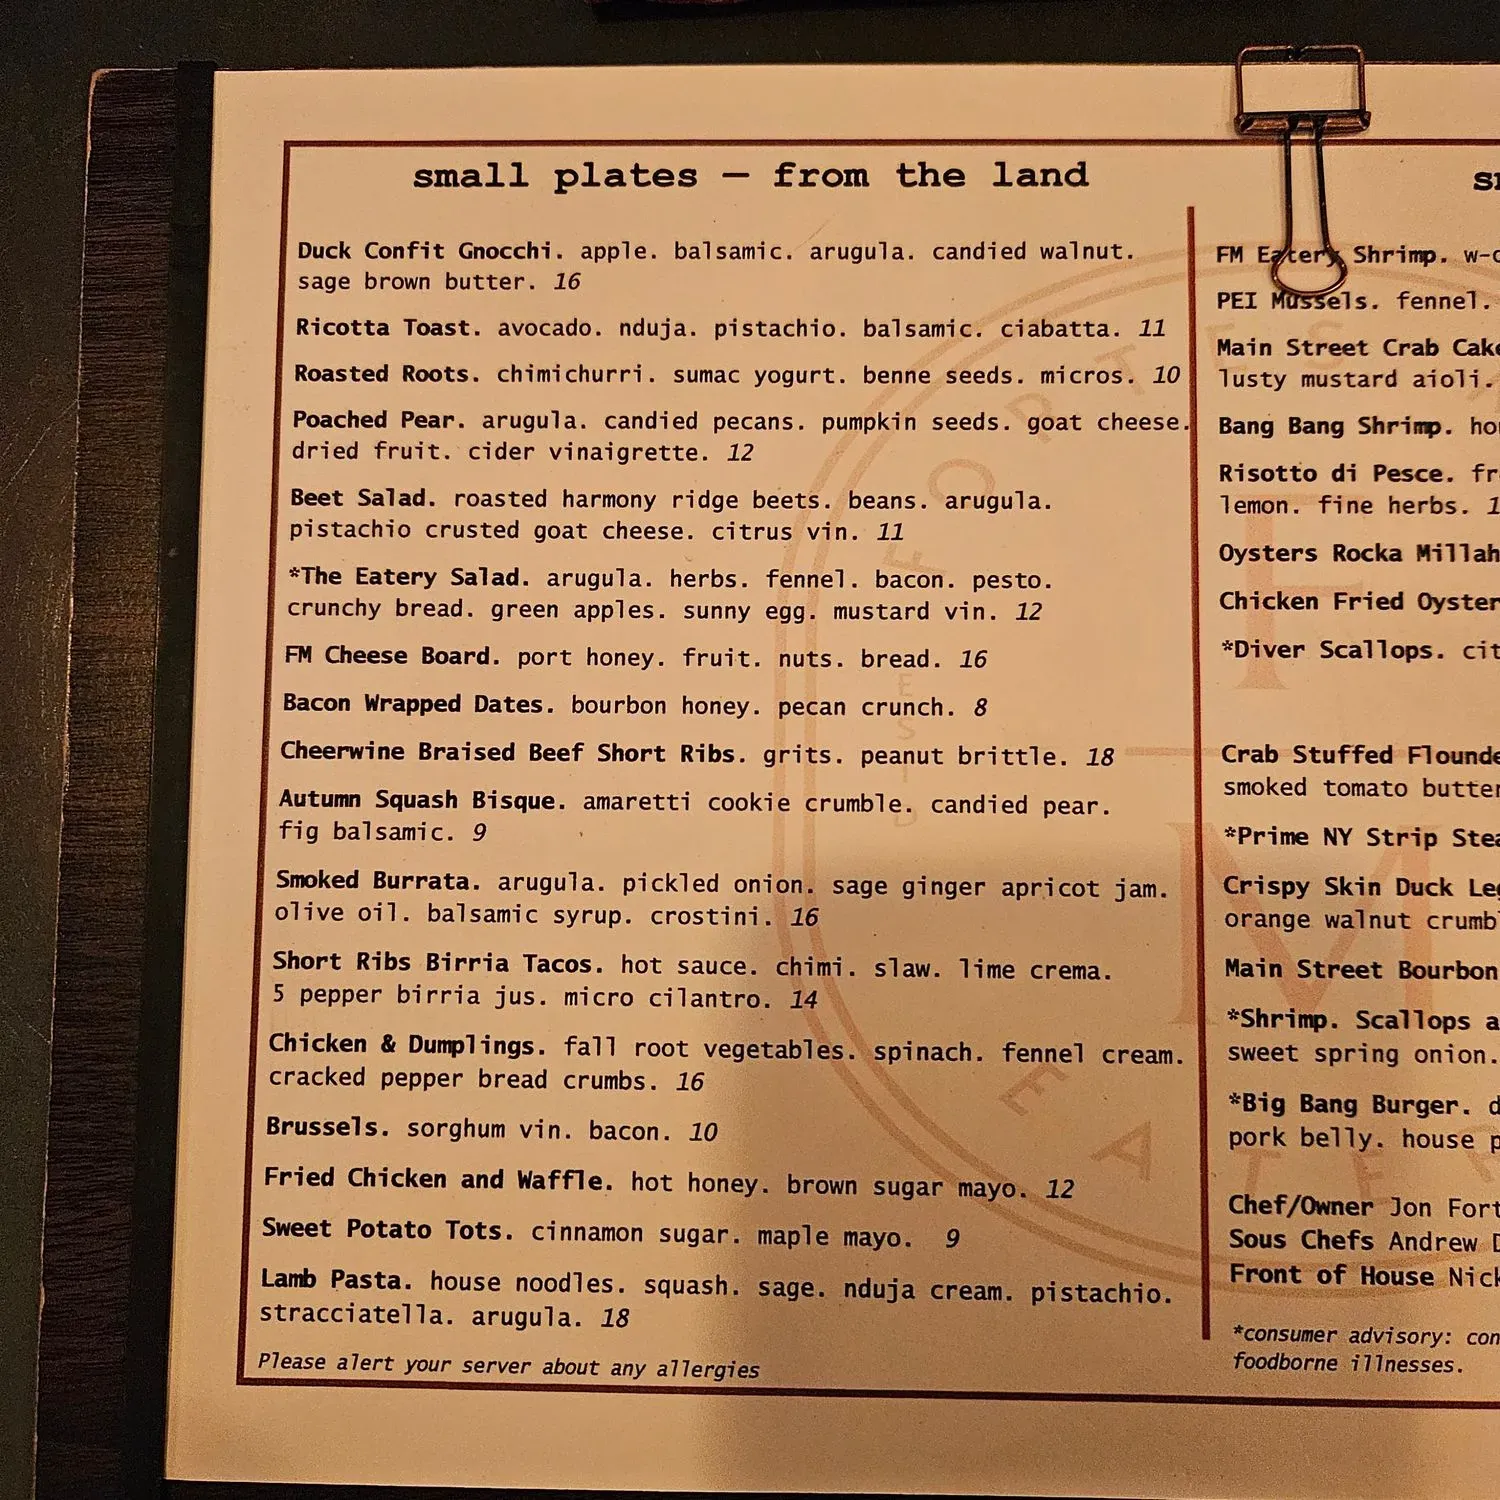 small plates — from the land
Duck Confit Gnocchi. apple. balsamic. arugula. candied walnut.
sage brown butter. 16
Ricotta Toast. avocado. nduja. pistachio. balsamic. ciabatta. 11
Roasted Roots. chimichurri. sumac yogurt. benne seeds. micros. 10
Poached Pear. arugula. candied pecans. pumpkin seeds. goat cheese.
dried fruit. cider vinaigrette. 12
Beet Salad. roasted harmony ridge beets. beans. arugula.
pistachio crusted goat cheese. citrus vin. 11
*The Eatery Salad. arugula. herbs. fennel. bacon. pesto.
crunchy bread. green apples. sunny egg. mustard vin. 12
FM Cheese Board. port honey. fruit. nuts. bread. 16
Bacon Wrapped Dates. bourbon honey. pecan crunch. 8
Cheerwine Braised Beef Short Ribs. grits. peanut brittle. 18
Autumn Squash Bisque. amaretti cookie crumble. candied pear.
fig balsamic. 9
Smoked Burrata. arugula. pickled onion. sage ginger apricot jam.
olive oil. balsamic syrup. crostini. 16
Short Ribs Birria Tacos. hot sauce. chimi. slaw. lime crema.
5 pepper birria jus. micro cilantro. 14
Chicken & Dumplings. fall root vegetables. spinach. fennel cream.
cracked pepper bread crumbs. 16
Brussels. sorghum vin. bacon. 10
Fried Chicken and Waffle. hot honey. brown sugar mayo. 12
Sweet Potato Tots. cinnamon sugar. maple mayo. 9
Lamb Pasta. house noodles. squash. sage. nduja cream. pistachio.
stracciatella. arugula. 18
Please alert your server about any allergies
FM Eatery Shrimp.
PEI Mussels. fennel.
Main Street Crab
lusty mustard aioli.
Bang Bang Shrimp.
Risotto di Pesce.
lemon. fine herbs.
Oysters Rocka Millah
Chicken Fried
*Diver Scallops.
Crab Stuffed
smoked tomato
*Prime NY Strip
Crispy Skin Duck
orange walnut
Main Street Bourbon
*Shrimp. Scallops
sweet spring onion.
*Big Bang Burger.
pork belly. house
Chef/Owner Jon
Sous Chefs Andrew
Front of House
*consumer advisory:
foodborne illnesses.